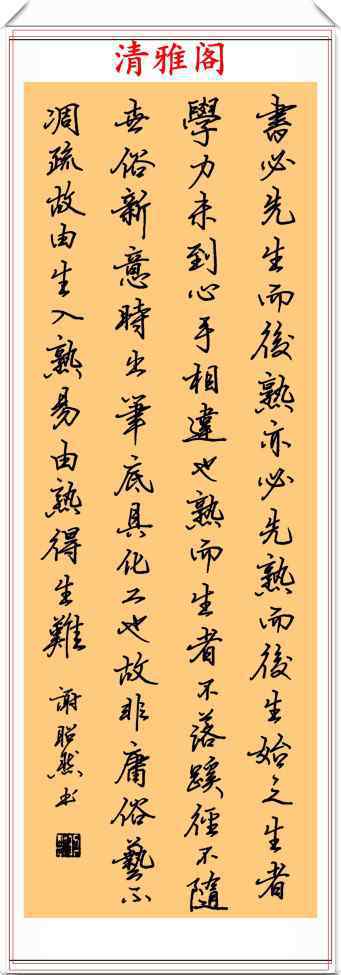 清雅阁
書必先生而後熟亦必先熟而後生始之生者
學力未到心手相違也熟而生者不落蹊徑不隨
世俗新意時出筆底具化工也故非庸俗藝不
凋疏故由生入熟易由熟得生難
謝昭然书